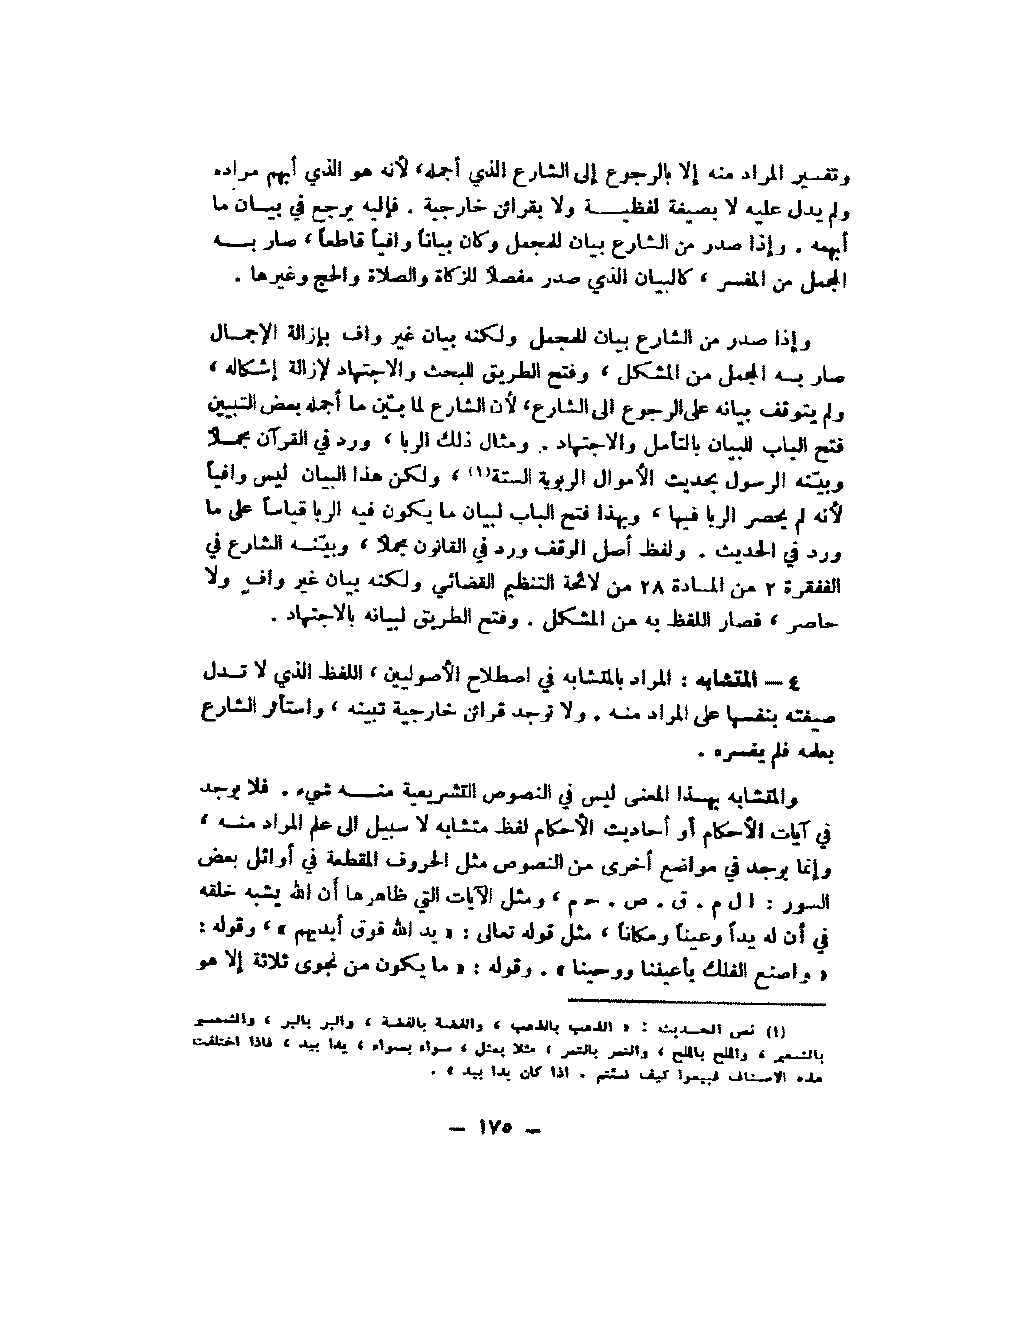 وتفسير المراد منه إلا بالرجوع إلى الشارع الذي أجمله، لأنه هو الذي أبهم مراده
ولم يدل عليه لا بصيغة لفظيـــة ولا بقرائن خارجية . فإليه يرجع في بيـان ما
أبهمه . وإذا صدر من الشارع بيان للمجمل وكان بياناً وافياً قاطعاً ، صار بـــه
المجمل من المفسر ، كالبيان الذي صدر مفصلاً للزكاة والصلاة والحج وغيرها .
وإذا صدر من الشارع بيان للمجمل ولكنه بيان غير واف بإزالة الإجمـال
صار بـه المجمل من المشكل ، وفتح الطريق للبحث والاجتهاد لإزالة إشكاله ،
ولم يتوقف بيانه على الرجوع الى الشارع، لأن الشارع لما بيّن ما أجمله بعض التبيين
فتح الباب للبيان بالتأمل والاجتهاد . ومثال ذلك الربا ، ورد في القرآن مجملاً
وبيّنه الرسول بحديث الأموال الربوية الستة(١) ، ولكن هذا البيان ليس وافياً
لأنه لم يحصر الربا فيها ، وبهذا فتح الباب لبيان ما يكون فيه الربا قياساً على ما
ورد في الحديث . ولفظ أصل الوقف ورد في القانون مجملا ، وبيّنــه الشارع في
الفقرة ٢ من المـادة ٢٨ من لائحة التنظيم القضائي ولكنه بيان غير وافٍ ولا
حاصر ، فصار اللفظ به من المشكل . وفتح الطريق لبيانه بالاجتهاد .
٤ – المتشابه : المراد بالمتشابه في اصطلاح الأصوليين ، اللفظ الذي لا تـدل
صيغته بنفسها على المراد منـه . ولا توجد قرائن خارجية تبينه ، واستأثر الشارع
بعلمه فلم يفسره .
والمتشابه بهـذا المعنى ليس في النصوص التشريعية منـــه شيء . فلا يوجد
في آيات الأحكام أو أحاديث الأحكام لفظ متشابه لا سبيل الى علم المراد منـه ،
وإنما يوجد في مواضع أخرى من النصوص مثل الحروف المقطعة في أوائل بعض
السور : ا ل م . ق . ص . حـ م ، ومثل الآيات التي ظاهرها أن الله يشبه خلقه
في أن له يداً وعيناً ومكاناً ، مثل قوله تعالى : « يد الله فوق أيديهم » ، وقوله :
« واصنع الفلك بأعيننا ووحينا » . وقوله : « ما يكون من نجوى ثلاثة إلا هو
(١) نص الحـديث : « الذهب بالذهب ، والفضة بالفضة ، والبر بالبر ، والشعير
بالشعير ، والملح بالملح ، والتمر بالتمر ، مثلا بمثل ، سواء بسواء ، يدا بيد ، فاذا اختلفت
هذه الاصناف فبيعوا كيف شئتم . اذا كان يدا بيد » .
– ١٧٥ –